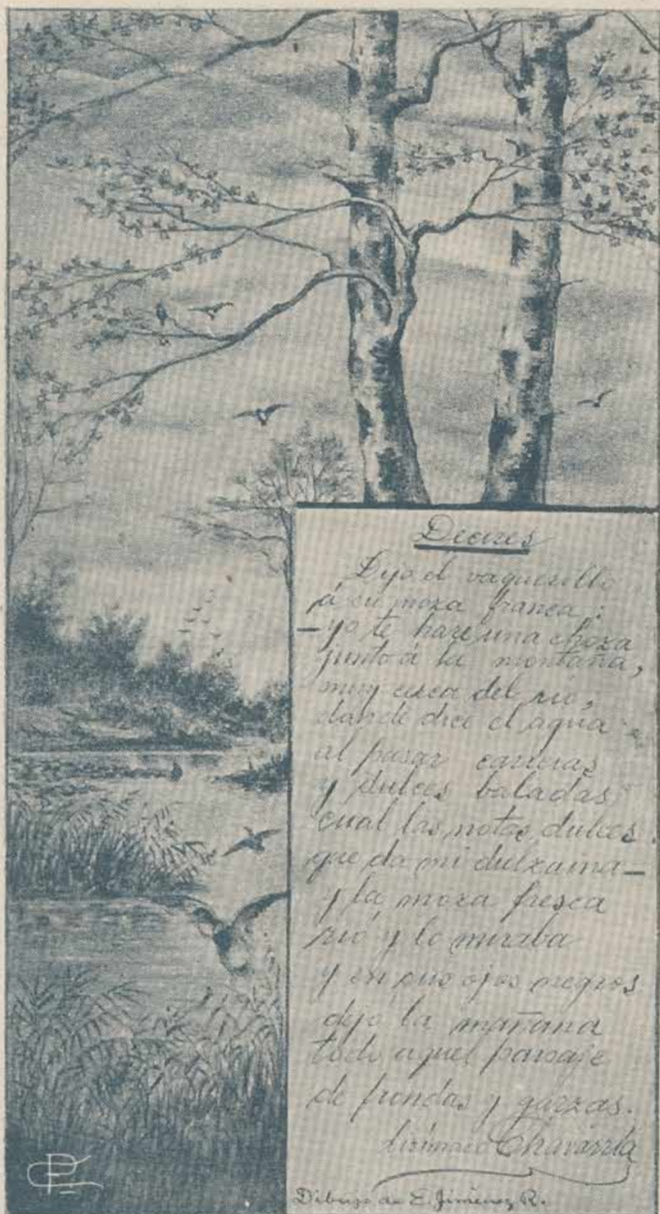 Decires
Dijo el vaquerillo
á su moza franca:
—yo te haré una choza
junto á la montaña,
muy cerca del río,
donde dice el agua
al pasar
y dulces baladas
cual las notas dulces
que da mi dulzaina—
y la moza fresca
rió y lo miraba
y en sus ojos negros
dejó la mañana
todo aquel paisaje
de frondas y garzas.
Lisímaco Chavarría
Dibujo de E. Jiménez R.